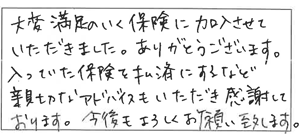 大変満足のいく保険に加入させて
いただきました。ありがとうございます。
入っていた保険を払済にするなど
親切なアドバイスもいただき感謝して
おります。今後もよろしくお願い致します。